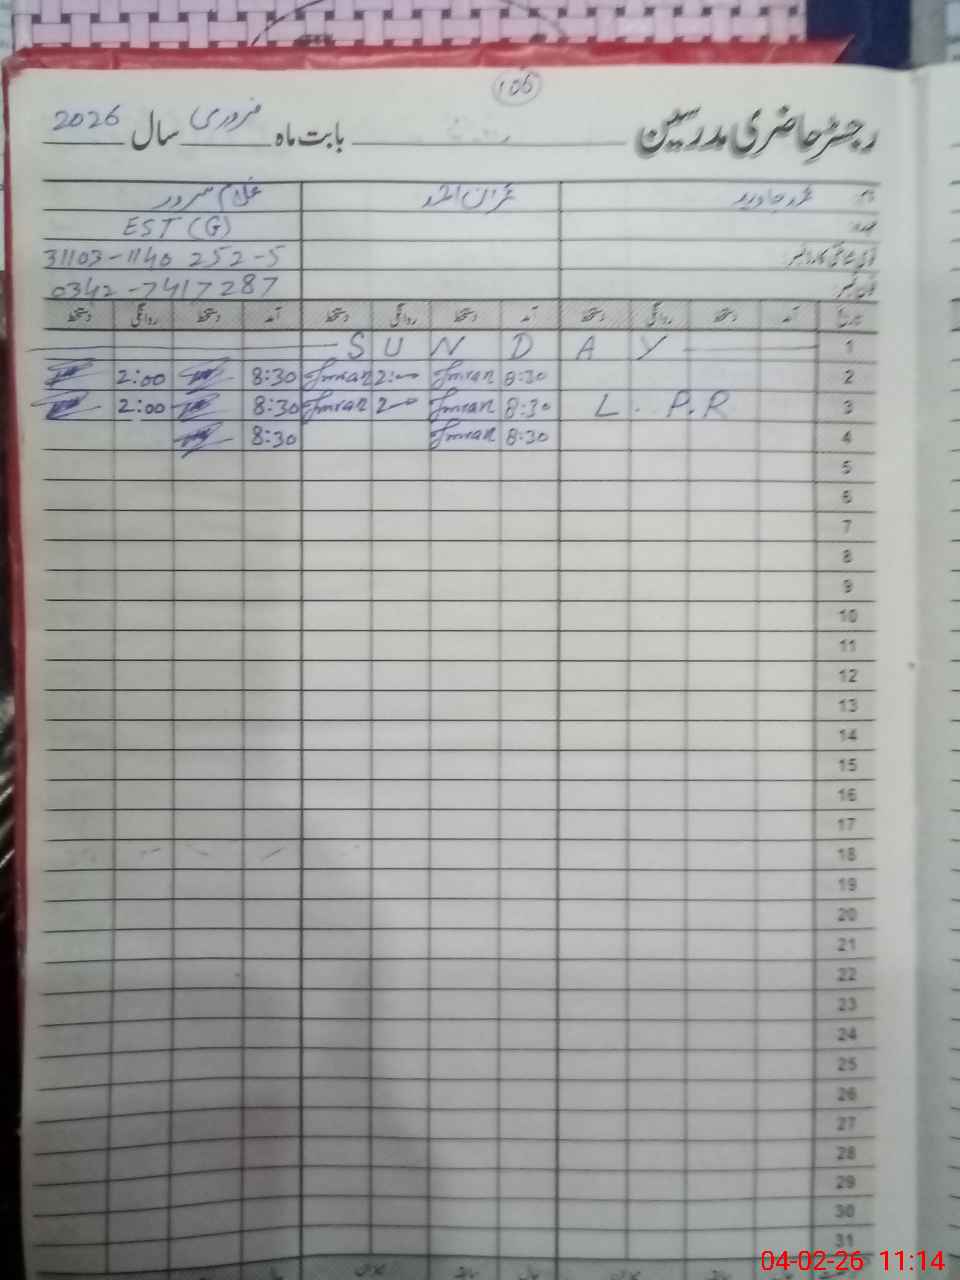 106
رجسٹر حاضری مدرسین بابت ماہ فروری سال 2026
نام محمد جاوید عمران احمد غلام سرور
عہدہ EST (G)
قومی شناختی کارڈ نمبر 31103-1140 252-5
فون نمبر 0342-7417287
تاریخ آمد دستخط روانگی دستخط آمد دستخط روانگی دستخط آمد دستخط روانگی دستخط
1 S U N D A Y
2 8:30 Imran 2:00 Imran 8:30 2:00
3 L.P.R 8:30 Imran 2 Imran 8:30 2:00
4 8:30 Imran 8:30
5
6
7
8
9
10
11
12
13
14
15
16
17
18
19
20
21
22
23
24
25
26
27
28
29
30
31
04-02-26 11:14